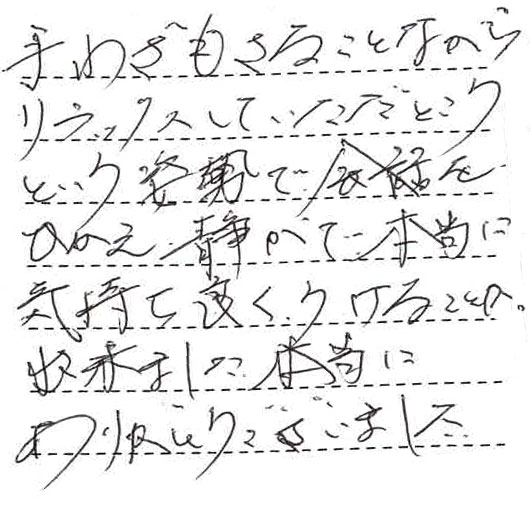 手わざもさることながら
リラックスしていただこう
という姿勢で会話を
ひかえ静かで本当に
気持ち良くうけることが
出来ました 本当に
ありがとうございました